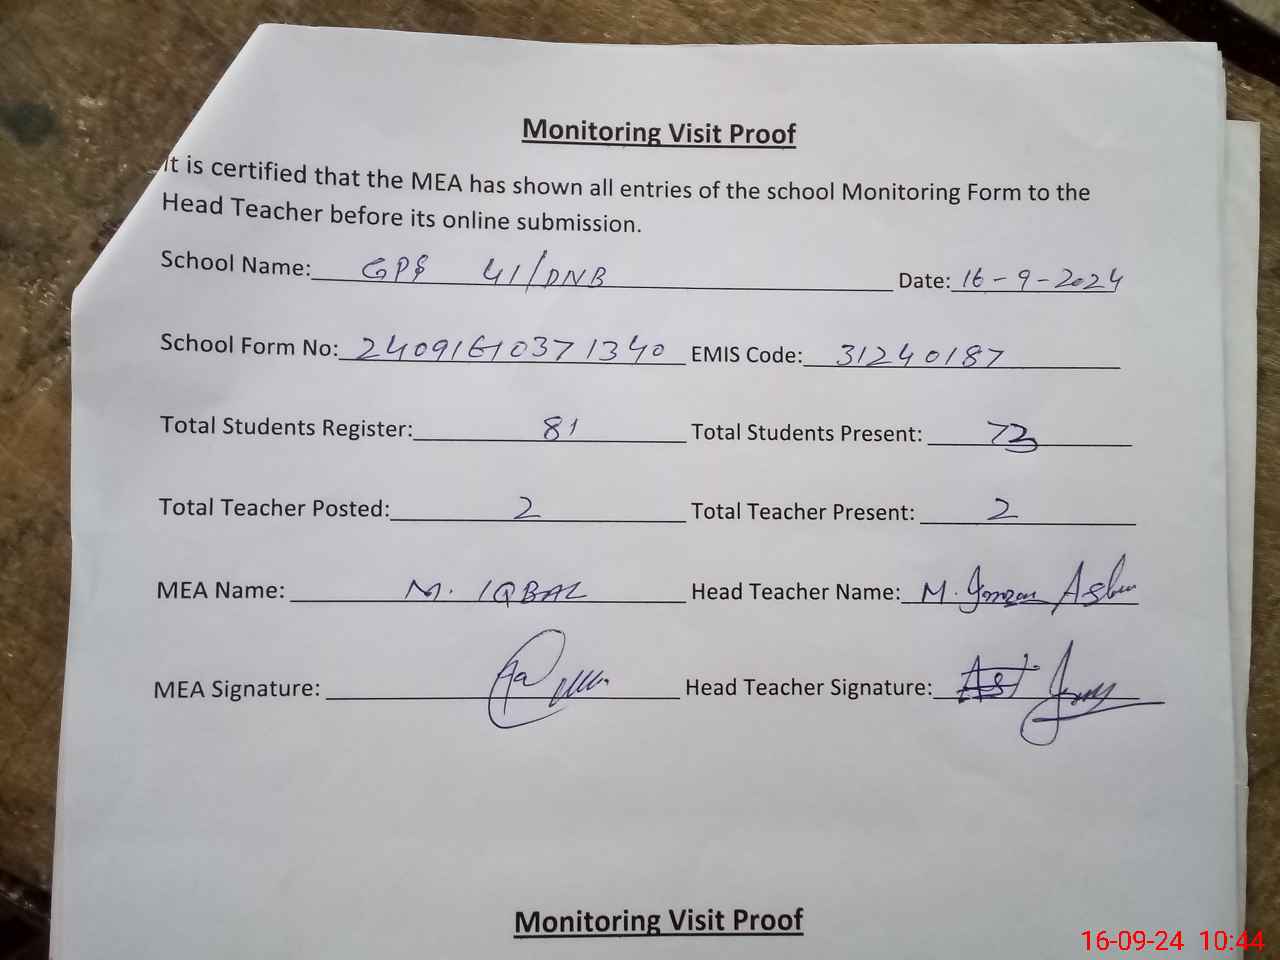 Monitoring Visit Proof
It is certified that the MEA has shown all entries of the school Monitoring Form to the
Head Teacher before its online submission.
School Name: GPS 41/DNB Date: 16-9-2024
School Form No: 2409161037 1340 EMIS Code: 31240187
Total Students Register: 81 Total Students Present: 73
Total Teacher Posted: 2 Total Teacher Present: 2
MEA Name: M. IQBAL Head Teacher Name: M.
MEA Signature: Head Teacher Signature:
Monitoring Visit Proof
16-09-24 10:44